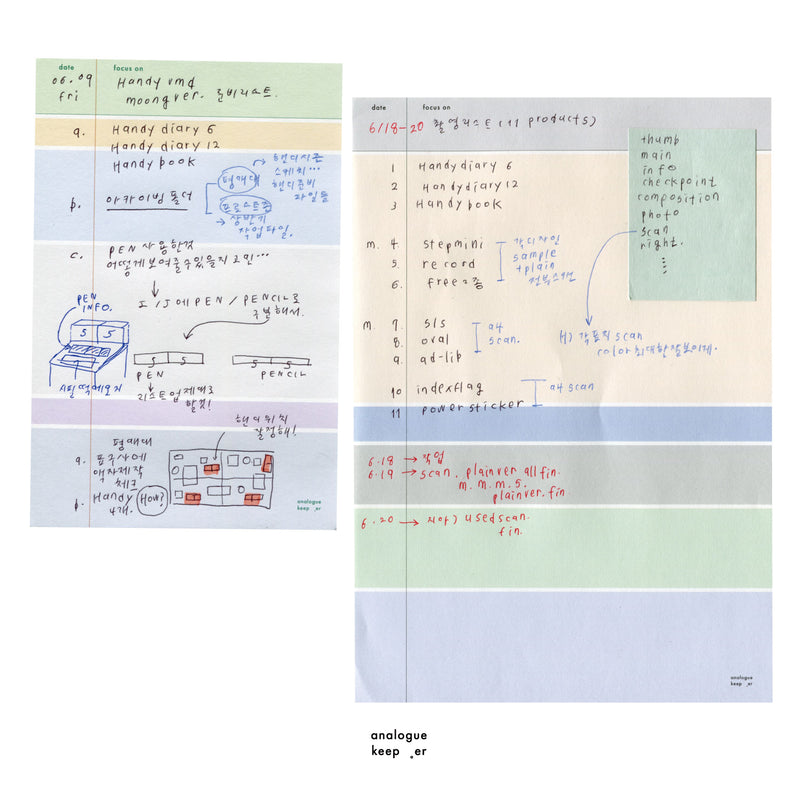 date focus on
06.09 Handy vmd
fri moongver. 준비리스트.
a. Handy diary 6
Handy diary 12
Handy book
b. 아카이빙 폴더
평매대
→ 핸디시즌
스케치...
핸디준비
파일들
프로스트존
→ 상반기
작업파일.
c. PEN 사용한것
어떻게보여줄수있을지고민...
I/J에 PEN / PENCIL로
구분해서.
PEN
INFO.
S S
스틸떡메모지
S S
PEN
S S
PENCIL
리스트업제대로
할것!
핸디위치
잘정해!
평매대
a. 표구사에
액자제작
체크
b. Handy How?
4개.
analogue
keep er
date focus on
6/18-20 촬영리스트 (11 products)
1 Handy diary 6
2 Handy diary 12
3 Handy book
m. 4. stepmini
5. record
6. free 2종
각디자인
sample
+plain
전부스캔
m. 7. sis
8. oral
9. ad-lib
a4
scan.
10 indexflag
11 powersticker
a4 scan
thumb
main
info
checkpoint
composition
photo
scan
right.
H) 각표지 scan
color 최대한잘보이게.
6.18 → 작업
6.19 → scan. plain ver all fin.
m. m. m. s.
plain ver. fin
6.20 → 지아) used scan.
fin.
analogue
keep er
analogue
keep er